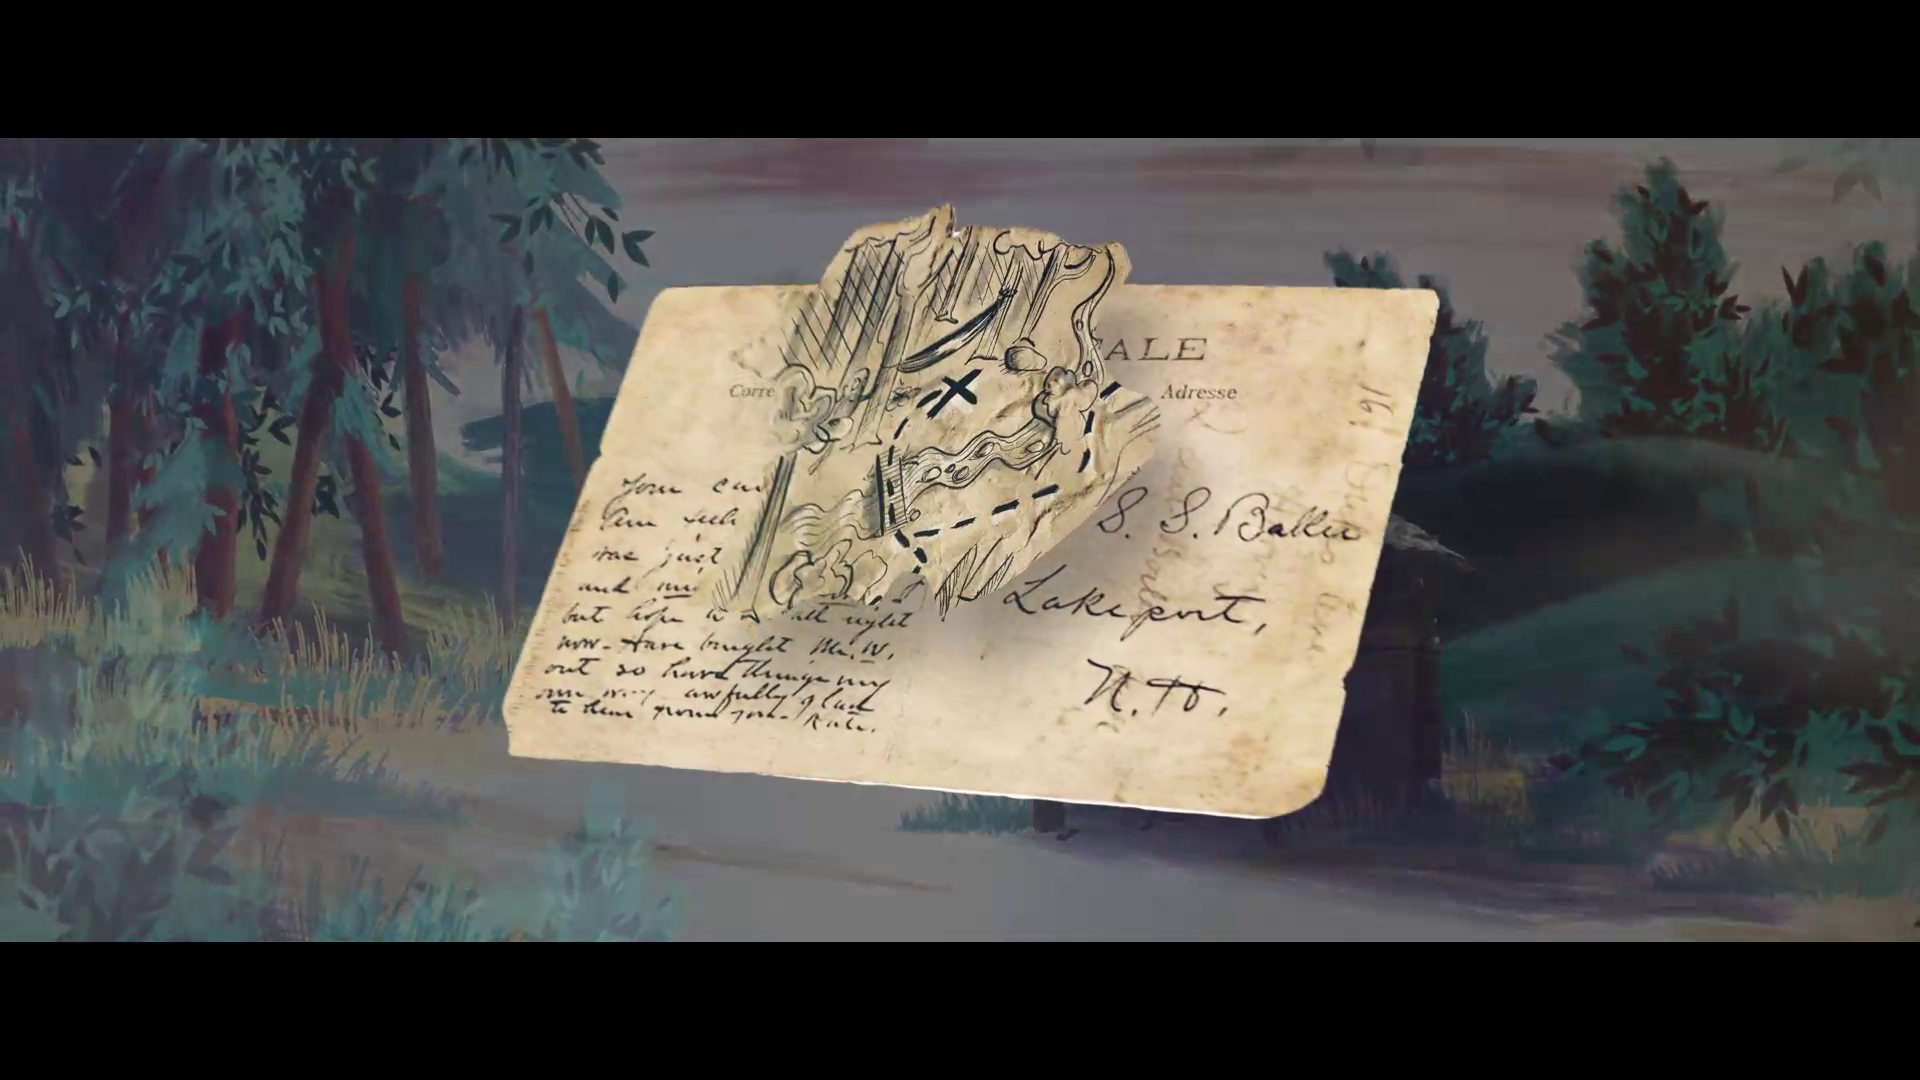 ALE
Corre
Adresse
was just
and
but hope all right
now. Have bought Mr. W.
out so have things my
own way. awfully glad
to hear from you. Kate.
S. S. Baller
Lakeport,
N. H.